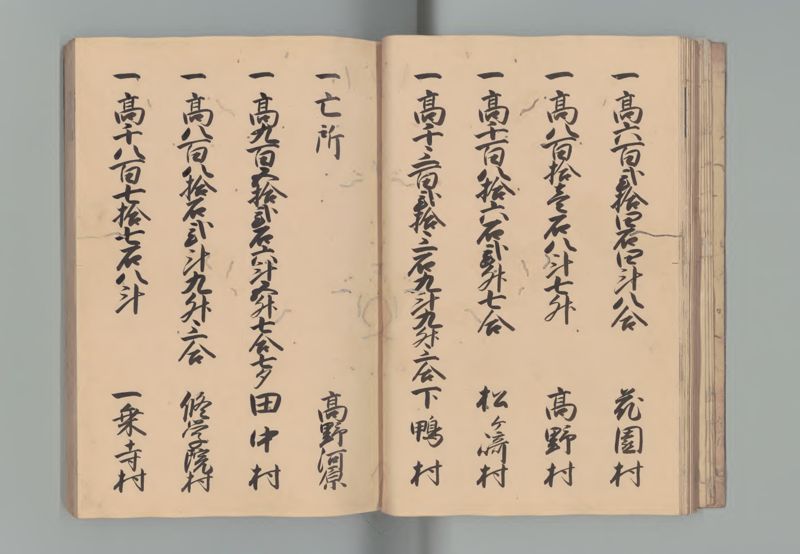 一高六百弐拾四石四斗八合 花園村
一高八百拾壱石八斗七升 高野村
一高千百八拾六石弐升七合 松ヶ崎村
一高千三百弐拾三石九斗九升三合 下鴨村
一亡所 高野河原
一高九百六拾弐石六斗六升七合七夕 田中村
一高八百八拾石弐斗九升三合 修学院村
一高千八百七拾七石八斗 一乗寺村